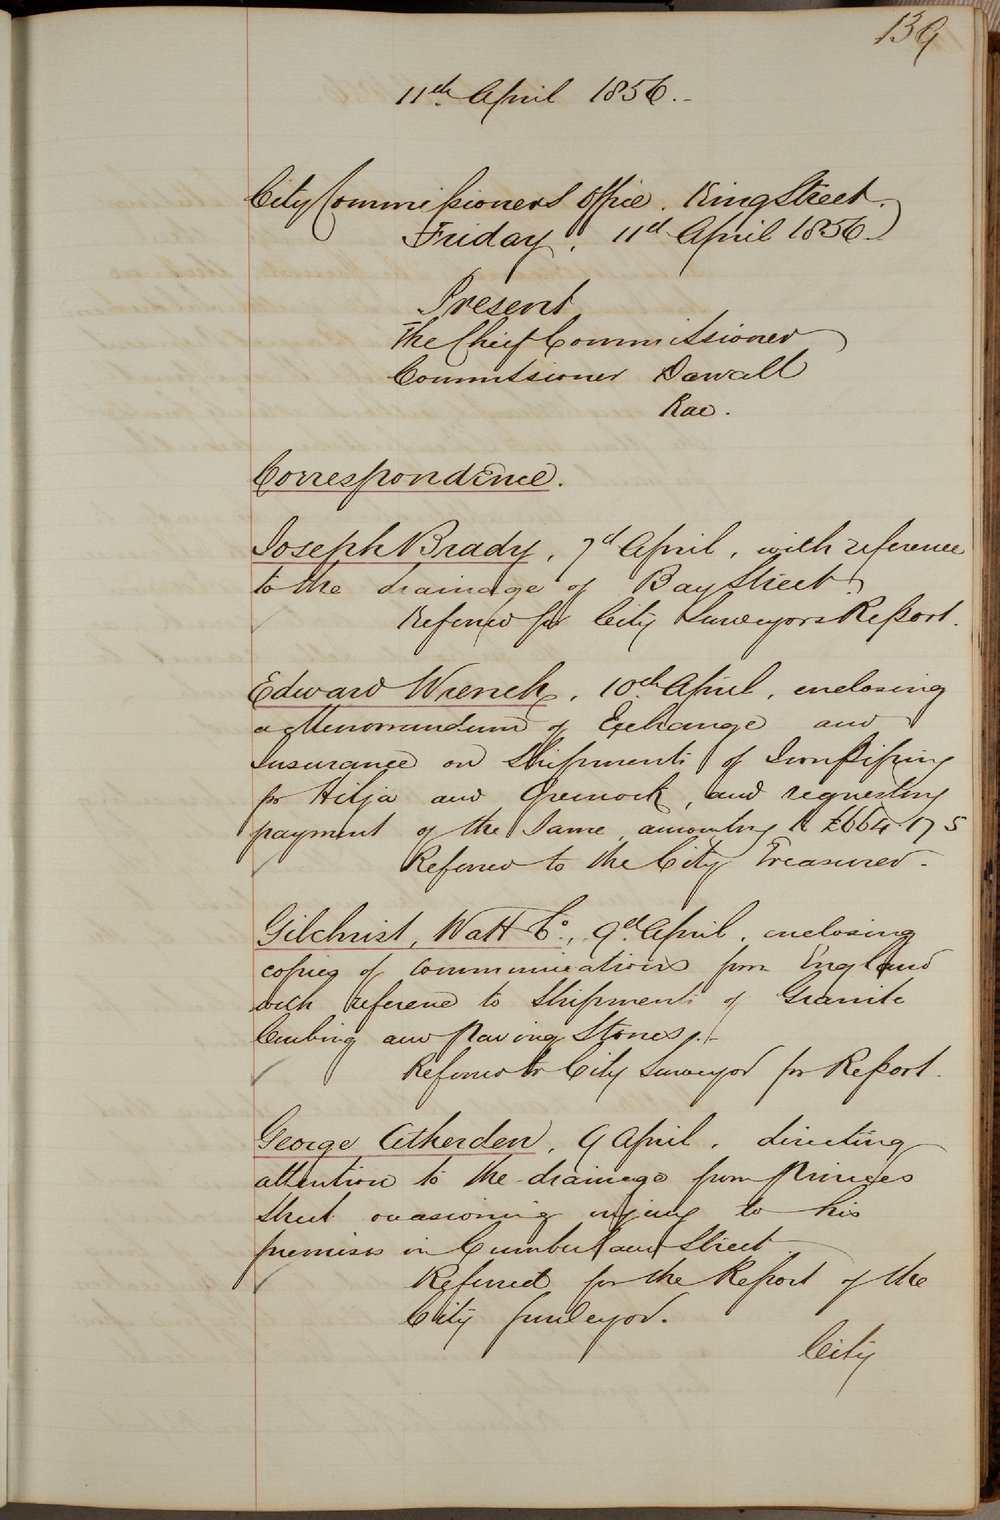 139
11th April 1856.
City Commissioners Office. King Street.
Friday, 11th April 1856.
Present
The Chief Commissioner
Commissioner Darvall
Rae.
Correspondence.
Joseph Brady, 7th April, with reference
to the drainage of Bay Street.
Referred for City Surveyors Report.
Edward Wrench, 10th April, enclosing
a Memorandum of Exchange and
Insurance on Shipments of Iron Piping
pr Hilja and Greenock, and requesting
payment of the Same, amounting to £664 17 5
Referred to the City Treasurer.
Gilchrist, Watt Co., 9th April, enclosing
copies of communications from England
with reference to Shipments of Granite
Curbing and Paving Stones.
Referred to City Surveyor for Report.
George Atherden, 9 April, directing
attention to the drainage from Princes
Street occasioning injury to his
premises in Cumberland Street
Referred for the Report of the
City Surveyor.
City